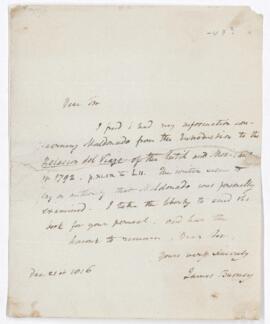 Dear Sir
I find I had my information con-
cerning Maldonado from the Introduction to the
Relacion del Viage of the Sutil and Mex
in 1792. p.
on authority that Maldonado was personally
examined. I take the liberty to send the
book for your perusal. and has the
honour to remain, Dear Sir,
Yours very sincerely
James Burney
Dec 21st 1816